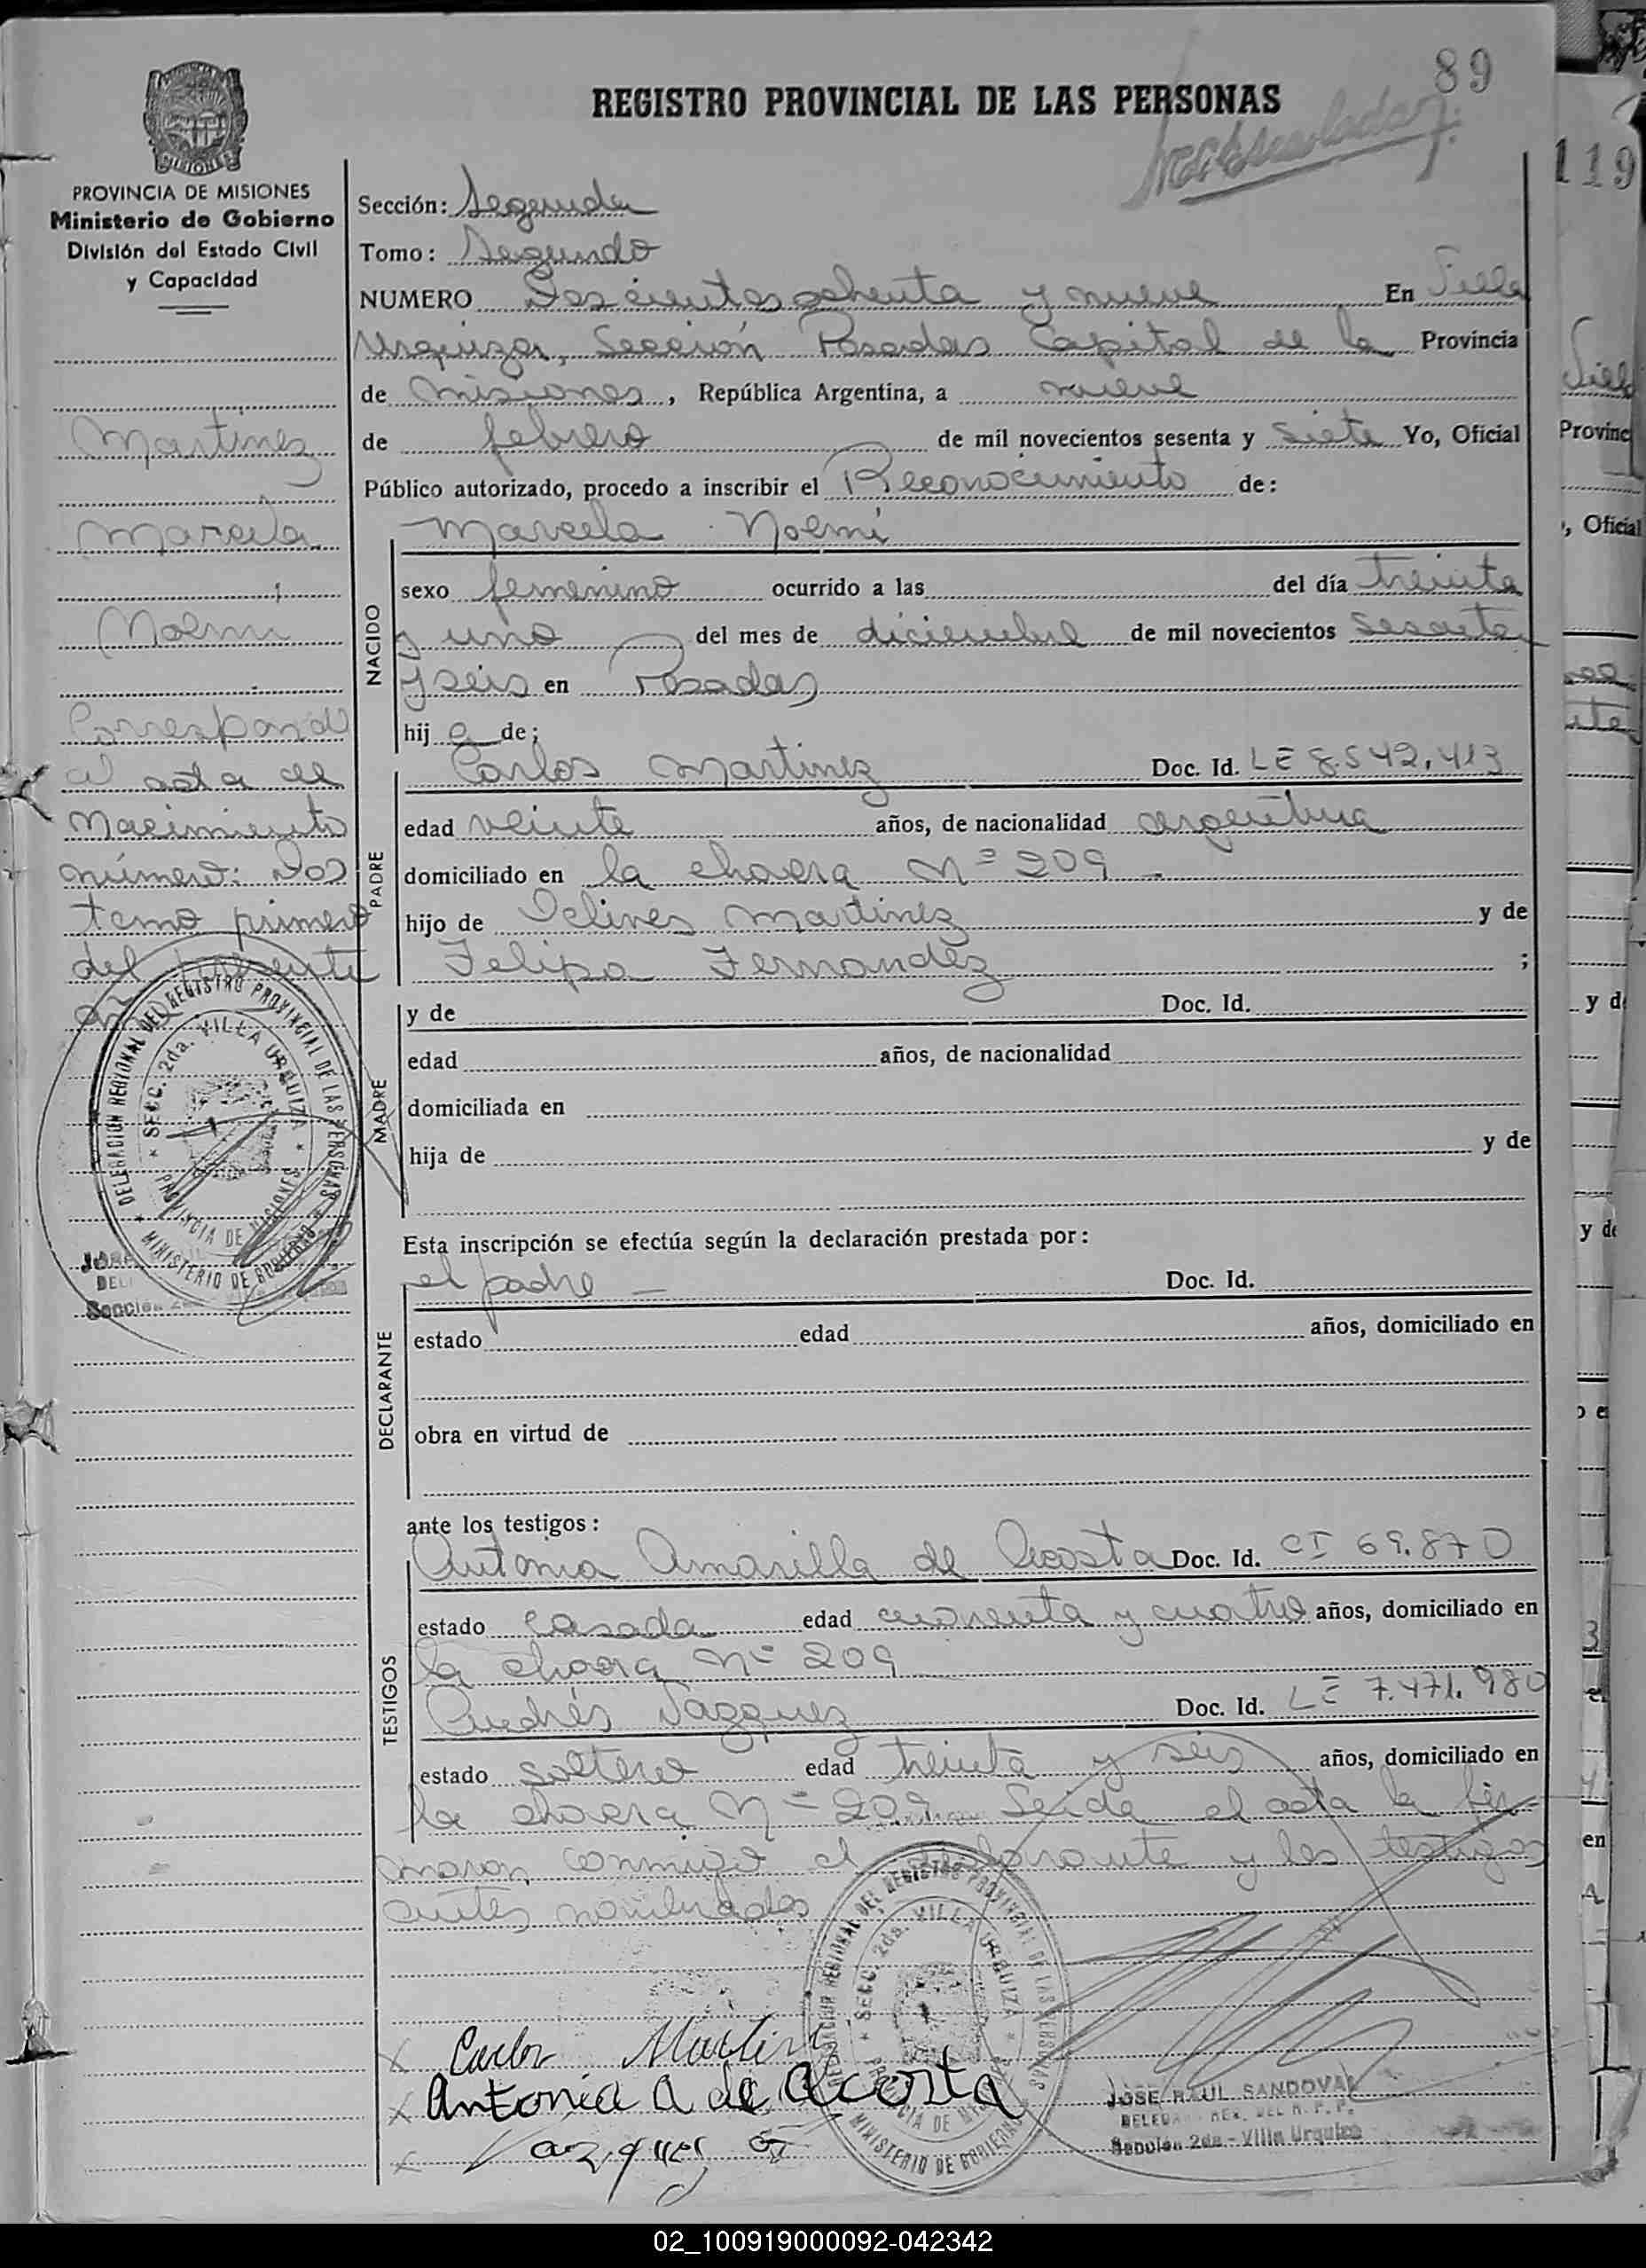 89
REGISTRO PROVINCIAL DE LAS PERSONAS
PROVINCIA DE MISIONES
Ministerio de Gobierno
División del Estado Civil
y Capacidad
Martinez
Marcela
Noemi
Corresponde
al acta de
Nacimiento
número: Dos
tomo primero
del presente
Sección: Segunda
Tomo: Segundo
NUMERO Dos cientos ochenta y nueve En Villa
Urquiza, Sección Posadas Capital de la Provincia
de Misiones, República Argentina, a nueve
de febrero de mil novecientos sesenta y siete Yo, Oficial
Público autorizado, procedo a inscribir el Reconocimiento de:
Marcela Noemí
NACIDO
sexo femenino ocurrido a las del día treinta
y uno del mes de diciembre de mil novecientos sesenta
y seis en Posadas
hij a de;
PADRE
Carlos Martinez Doc. Id. LE 8.542.413
edad veinte años, de nacionalidad argentina
domiciliado en la chacra Nº 209 -
hijo de Martinez y de
Felipa Fernandez ;
MADRE
y de Doc. Id.
edad años, de nacionalidad
domiciliada en
hija de y de
Esta inscripción se efectúa según la declaración prestada por:
DECLARANTE
el padre - Doc. Id.
estado edad años, domiciliado en
obra en virtud de
ante los testigos:
TESTIGOS
Antonia Amarilla de Acosta Doc. Id. CI 69.870
estado casada edad cuarenta y cuatro años, domiciliado en
la chacra Nº 209
Andrés Vazquez Doc. Id. LE 7.471.980
estado soltero edad treinta y seis años, domiciliado en
la chacra Nº 209. Leida el acta la fir
maron conmigo el declarante y los testigos
antes nombrados
DELEGACION REGIONAL DEL REGISTRO PROVINCIAL DE LAS PERSONAS
SECC. 2da. VILLA URQUIZA
PROVINCIA DE MISIONES
MINISTERIO DE GOBIERNO
Carlos Martinez
Antonia A de Acosta
Vazquez
JOSE RAUL SANDOVAL
DELEGA REG. DEL R. P. P.
Sección 2da - Villa Urquiza
DELEGACION REGIONAL DEL REGISTRO PROVINCIAL DE LAS PERSONAS
SECC. 2da. VILLA URQUIZA
PROVINCIA DE MISIONES
MINISTERIO DE GOBIERNO
119
Provinc
, Oficial
y d
y de
en
02_100919000092-042342